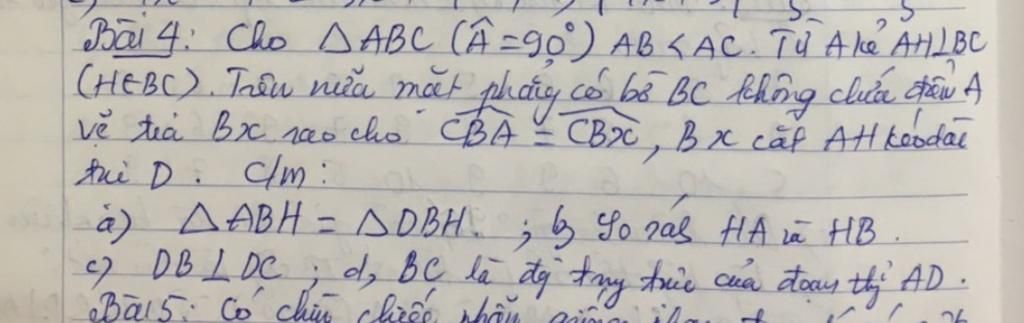 Bài 4: Cho △ABC (Â=90°) AB < AC. Từ A kẻ AH⊥BC
(H∈BC). Trên nửa mặt phẳng có bờ BC không chứa điểm A
vẽ tia Bx sao cho CBA = CBx, Bx cắt AH kéo dài
tại D. C/m:
a) △ABH = △DBH. ; b, So sánh HA và HB.
c) DB⊥DC ; d, BC là đg trung trực của đoạn thg AD.
Bài 5: Có chín chiếc